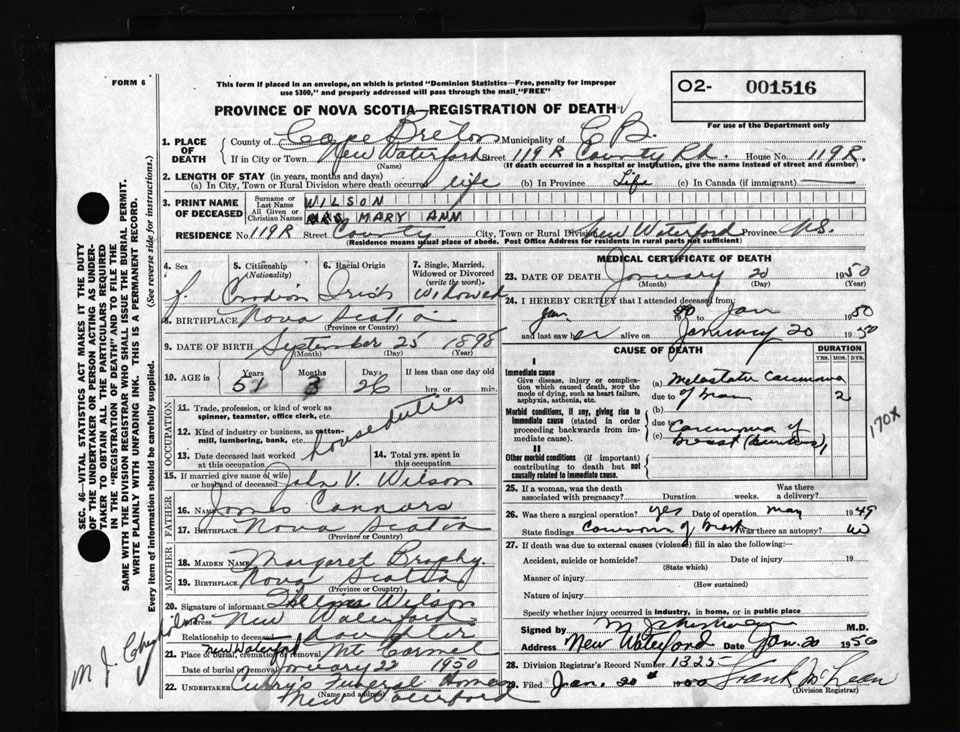 FORM 6
This form if placed in an envelope, on which is printed "Dominion Statistics—Free, penalty for improper
use $300," and properly addressed will pass through the mail "FREE"
O2- 001516
For use of the Department only
PROVINCE OF NOVA SCOTIA—REGISTRATION OF DEATH
1. PLACE OF DEATH
County of Cape Breton Municipality of C B.
If in City or Town New Waterford Street 119 R County Rd. House No. 119 R.
(Name) (If death occurred in a hospital or institution, give the name instead of street and number)
2. LENGTH OF STAY (in years, months and days)
(a) In City, Town or Rural Division where death occurred life (b) In Province Life (c) In Canada (if immigrant) —
3. PRINT NAME OF DECEASED
Surname or Last Name WILSON
All Given or Christian Names MRS MARY ANN
RESIDENCE No 119R Street County City, Town or Rural Division New Waterford Province N.S.
(Residence means usual place of abode. Post Office Address for residents in rural parts not sufficient)
4. Sex 5. Citizenship (Nationality) 6. Racial Origin 7. Single, Married, Widowed or Divorced (write the word)
f. Canadian Irish Widowed
8. BIRTHPLACE Nova Scotia
(Province or Country)
9. DATE OF BIRTH September 25 1898
(Month) (Day) (Year)
10. AGE in Years Months Days If less than one day old
51 3 26 hrs. or min.
OCCUPATION
11. Trade, profession, or kind of work as
spinner, teamster, office clerk, etc.
12. Kind of industry or business, as cotten-
mill, lumbering, bank, etc.
house duties
13. Date deceased last worked at this occupation
14. Total yrs. spent in this occupation
15. If married give name of wife
or husband of deceased John V. Wilson
FATHER
16. Name James Connors
17. Birthplace Nova Scotia
(Province or Country)
MOTHER
18. Maiden Name Margaret Brophy.
19. Birthplace Nova Scotia
(Province or Country)
20. Signature of informant Thelma Wilson
Address New Waterford
Relationship to deceased daughter
21. Place of burial, cremation or removal New Waterford Mt Carmel
Date of burial or removal January 22 1950
22. Undertaker Curry's Funeral Home
(Name and address)
New Waterford
MEDICAL CERTIFICATE OF DEATH
23. DATE OF DEATH January 20 1950
(Month) (Day) (Year)
24. I HEREBY CERTIFY that I attended deceased from:
Jan. 50 to Jan 1950
and last saw her alive on January 20 1950
CAUSE OF DEATH DURATION
YRS. MOS. DYS.
I
Immediate cause
Give disease, injury or complica-
tion which caused death, NOT the
mode of dying, such as heart failure,
asphyxia, asthenia, etc.
(a) Metastatic Carcinoma
due to of 2
Morbid conditions, if any, giving rise to
immediate cause (stated in order
proceeding backwards from im-
mediate cause).
(b)
due to Carcinoma of
(c) breast
170X
II
Other morbid conditions (if important)
contributing to death but not
causally related to immediate cause.
25. If a woman, was the death
associated with pregnancy? Duration weeks. Was there a delivery?
26. Was there a surgical operation? yes Date of operation May 1949
State findings Carcinoma of Was there an autopsy? no
27. If death was due to external causes (violence) fill in also the following:—
Accident, suicide or homicide? Date of injury 19
(State which)
Manner of injury
(How sustained)
Nature of injury
Specify whether injury occurred in industry, in home, or in public place
Signed by M.D.
Address New Waterford Date Jan. 20 1950
28. Division Registrar's Record Number 1325
29. Filed Jan. 20th 1950 Frank McLean
(Division Registrar)
SEC. 46—VITAL STATISTICS ACT MAKES IT THE DUTY
OF THE UNDERTAKER OR PERSON ACTING AS UNDER-
TAKER TO OBTAIN ALL THE PARTICULARS REQUIRED
IN THE "REGISTRATION OF DEATH" AND TO FILE THE
SAME WITH THE DIVISION REGISTRAR WHO SHALL ISSUE THE BURIAL PERMIT.
WRITE PLAINLY WITH UNFADING INK. THIS IS A PERMANENT RECORD.
Every item of information should be carefully supplied. (See reverse side for instructions.)
M J Chisholm